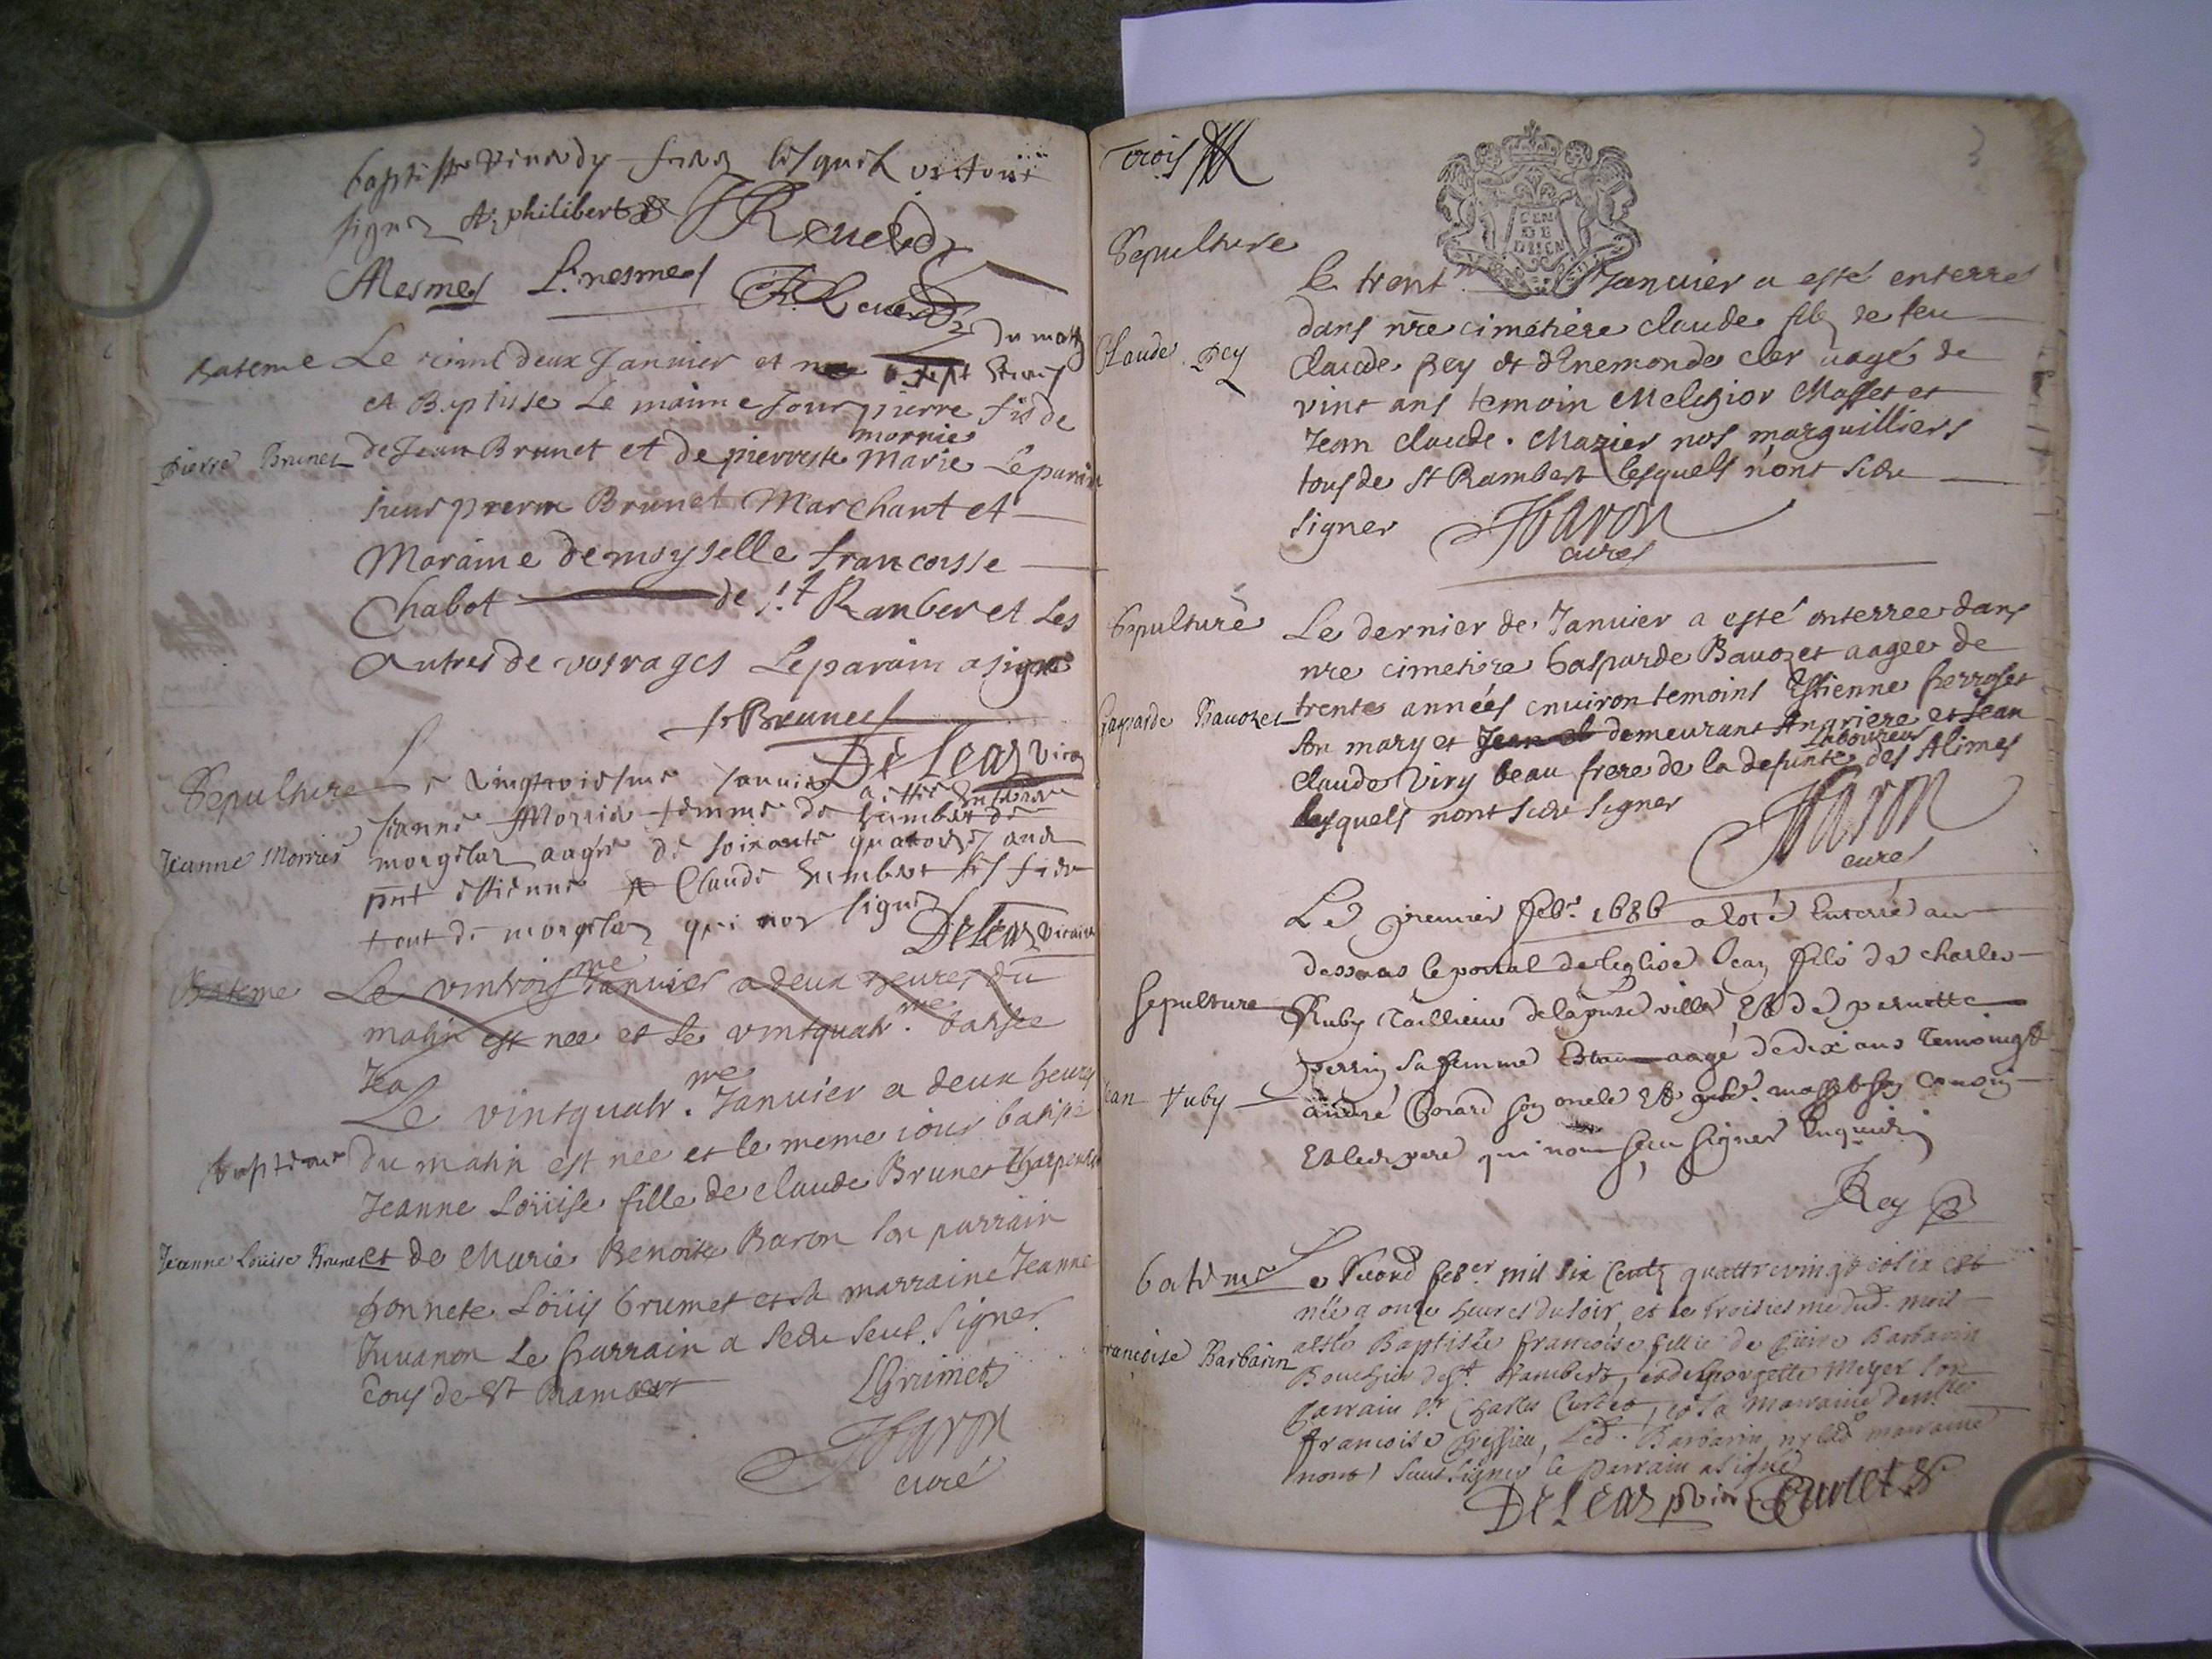 baptiste
signer philibert Reverdy
Mesmes L. nesmes
du matin
bateme Le vint deux Janvier et a sept
et Baptise Le maime Jour pierre fis de
mornie
pierre Brunet de Jean Brunet et de pierrette Marie Le parain
sieur pierre Brunet Marchant et
Maraine demoyselle francoisse
Chabot de St Ranber et Les
Autres de vosrages Le parain a signe
Brunet
De Lear vicaire
Sepulture Le vingtroiesme Janvier a esté
Jeanne Mornier Jeanne Mornie femme de humbert de
morgelaz aagée de soixante quatorze ans
pnt estienne Claude humbert
tout de morgelaz qui non signer
De Lear vicaire
Bateme Le vintrois me Janvier a deux heures du
matin est nee et le vintquatr. me batisee
Jea
Le vintquatr. me Janvier a deux heures
baptême du matin est née et le meme iour batisée
Jeanne Loüise fille de claude Brunet Charpentier
Jeanne Loüise Brunet et de Marie Benoite Baron son parrain
honnete Loüis Grumet et sa marraine Jeanne
Juvanon Le parrain a seu seul signer
tous de St Rambert
LGrumet
JBaron
curé
Trois
3
Sepulture
Le trent.e Janvier a esté enterré
dans nre cimetiere claude fils de feu
Claude Rey Claude Rey et d'Enemonde cler aagé de
vint ans temoin Melchior Masset et
Jean claude Mazier nos marguilliers
tous de St Rambert lesquels n'ont sceu
signer JBaron
curé
Sepulture Le dernier de Janvier a esté enterree dans
nre cimetiere Gasparde Bavozet aagee de
Gasparde Bavozet trente années environ temoins Estienne perroset
son mary et Jean demeurant Angriere et Jean
laboureur
Claude Viry beau frere de la defunte des Alimes
lesquels n'ont sceu signer
JBaron
curé
Le premier febr. 1686 a esté Enterré au
dessous le portal de l'eglise Jean fils de charles
sepulture Ruby Taillieur de la ville Et de pernette
perrin sa femme aagé de dix ans Temoing
Jean Ruby andré son oncle Et son cousin
Et led. pere qui n'ont seu signer Enquis
Rey
batême Le second feber mil six Cents quattre vingt et six est
née a onze heures du soir, et le troisiesme dud. mois
a esté Baptisée francoise fillie de Barbarin
francoise Barbarin Boucher de St Rambert, et de georgette Meyer son
parrain Sr Charles Curlet, et sa marraine demlle
francoise, Led. Barbarin ny lad marraine
n'ont sceu signer le parrain a signé
De Lear Curlet